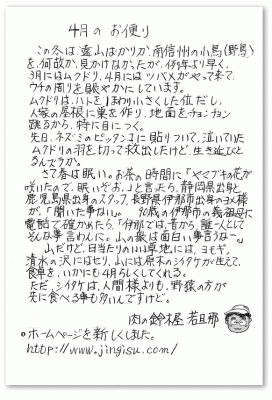 4月の お便り
この冬は、遠山ばかりか、南信州の小鳥(野鳥)
を、何故か、見かけなかったが、例年より早く、
3月にはムクドリ、4月にはツバメがやって来て、
ウチの周りを賑やかにしています。
ムクドリは、ハトを1まわり小さくした位だし、
人家の屋根に巣を作り、地面をチョンチョン
跳るから、特に目につく。
先日、ネズミのピッタンコに貼りついて、泣いていた
ムクドリの羽を切って救出したけど、生き延びと
るんズラか。
さて春は眠い。お茶の時間に「ヤマブキの花が
咲いたので、眠いぞお。」と言ったら、静岡県出身と、
鹿児島県出身のスタッフ、長野県伊那市出身のヨメ様
が、「聞いた事ない。」 90歳の伊那市の義祖母に
電話で確かめたら、「伊那では、昔から、誰一人として
そんな事言わんに。山の衆は面白い事言うなー。」
山だけど、日当たりのいい草地には、ヨモギ、
清水の沢にはセリ、山には原木のシイタケが生えて、
食卓を、いかにも4月らしくしてくれる。
ただ、シイタケは、人間様よりも、野猿の方が
先に食べる事も多いんですけど。
肉の鈴木屋 若旦那
○ホームページを新しくしました。
http://www.jingisu.com/